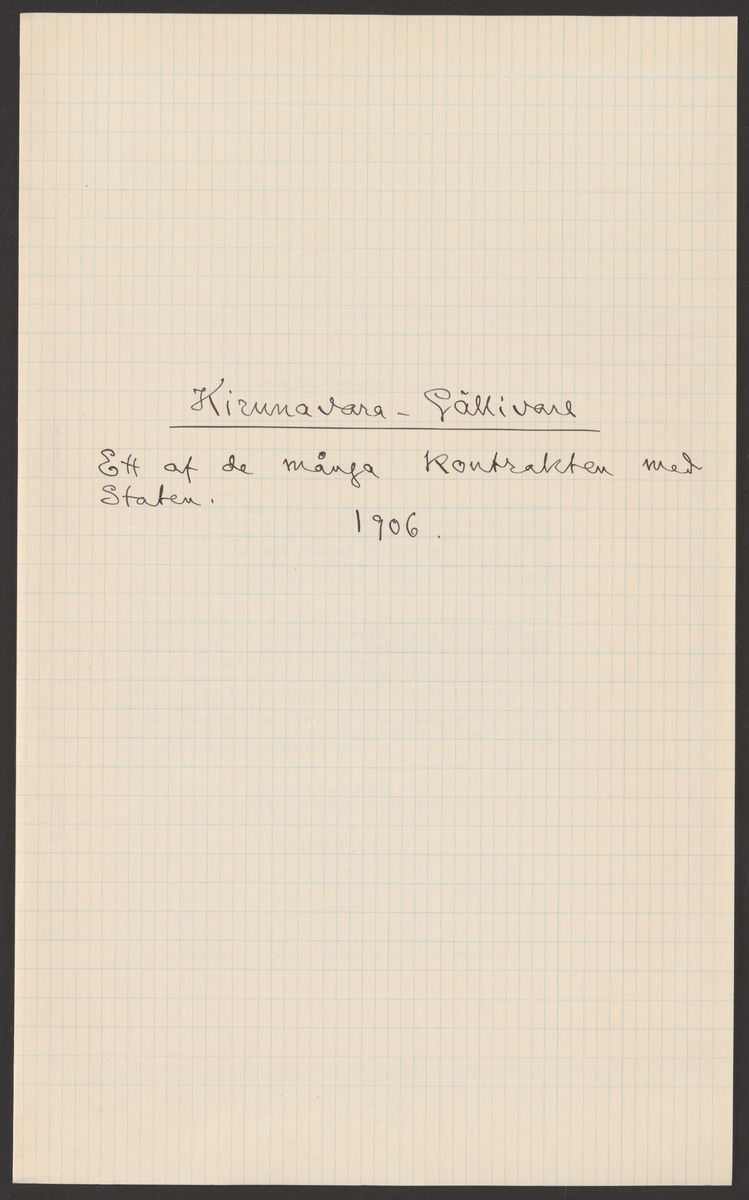 Kirunavara - Gällivare
Ett af de många kontrakten med
Staten.
1906.